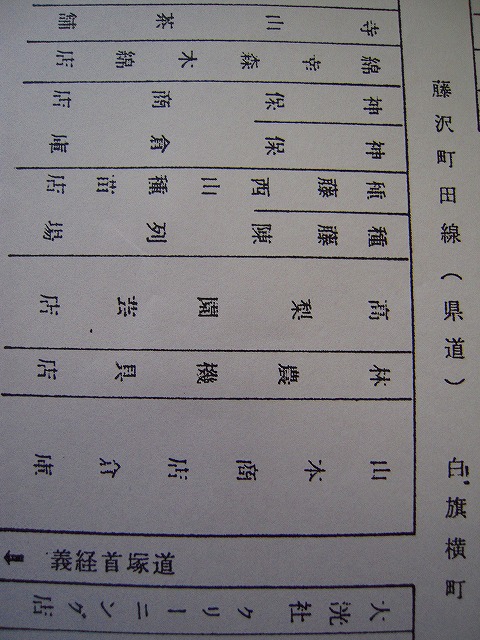 藤沢町田線(県道) 白旗横町
寺山茶舗
綿幸森木綿店
神保商店
神保倉庫
種藤西山種苗店
種藤陳列場
高梨園芸店
林農機具店
山本商店倉庫
義経首塚道
大洸社クリーニング店